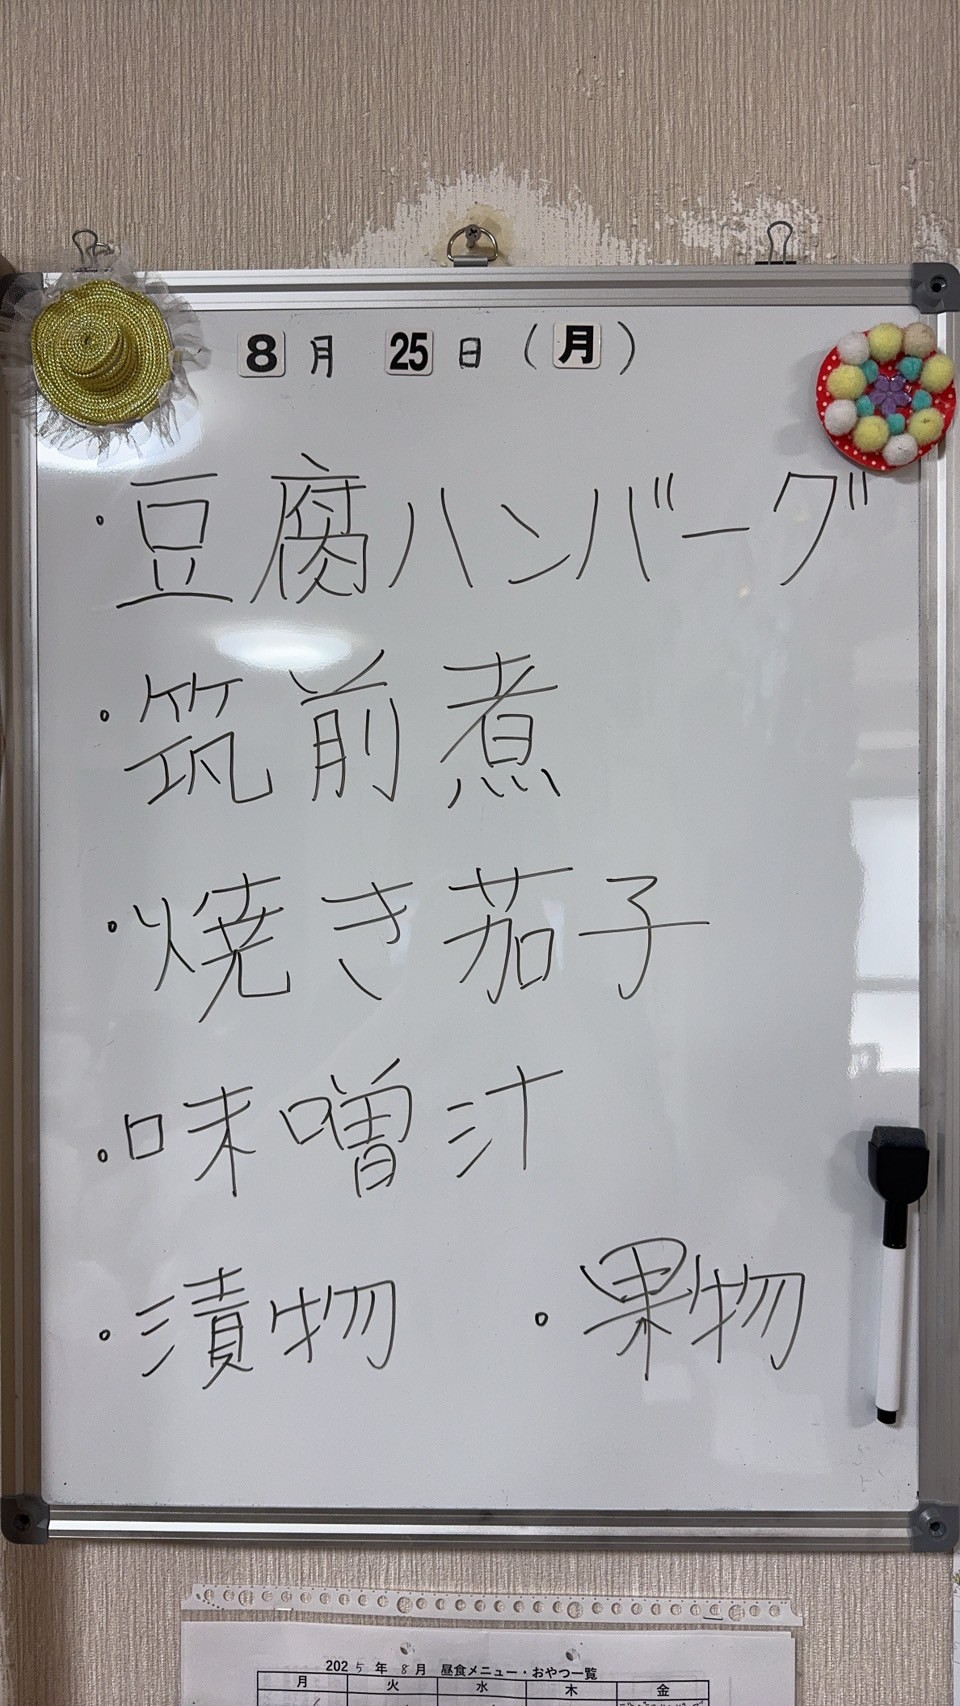 8月 25日（月）
・豆腐ハンバーグ
・筑前煮
・焼き茄子
・味噌汁
・漬物 ・果物
2025年8月 昼食メニュー・おやつ一覧
月 火 水 木 金